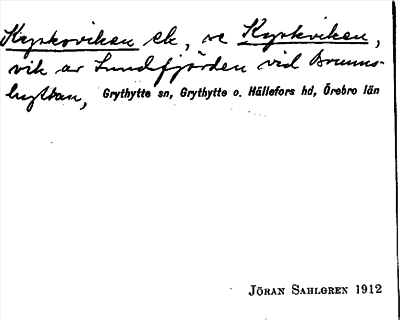 Kyrkoviken ek, ve Kyrkviken,
vik av Sundfjärden vid Brunns-
hyttan, Grythytte sn, Grythytte o. Hällefors hd, Örebro län
JÖRAN SAHLGREN 1912